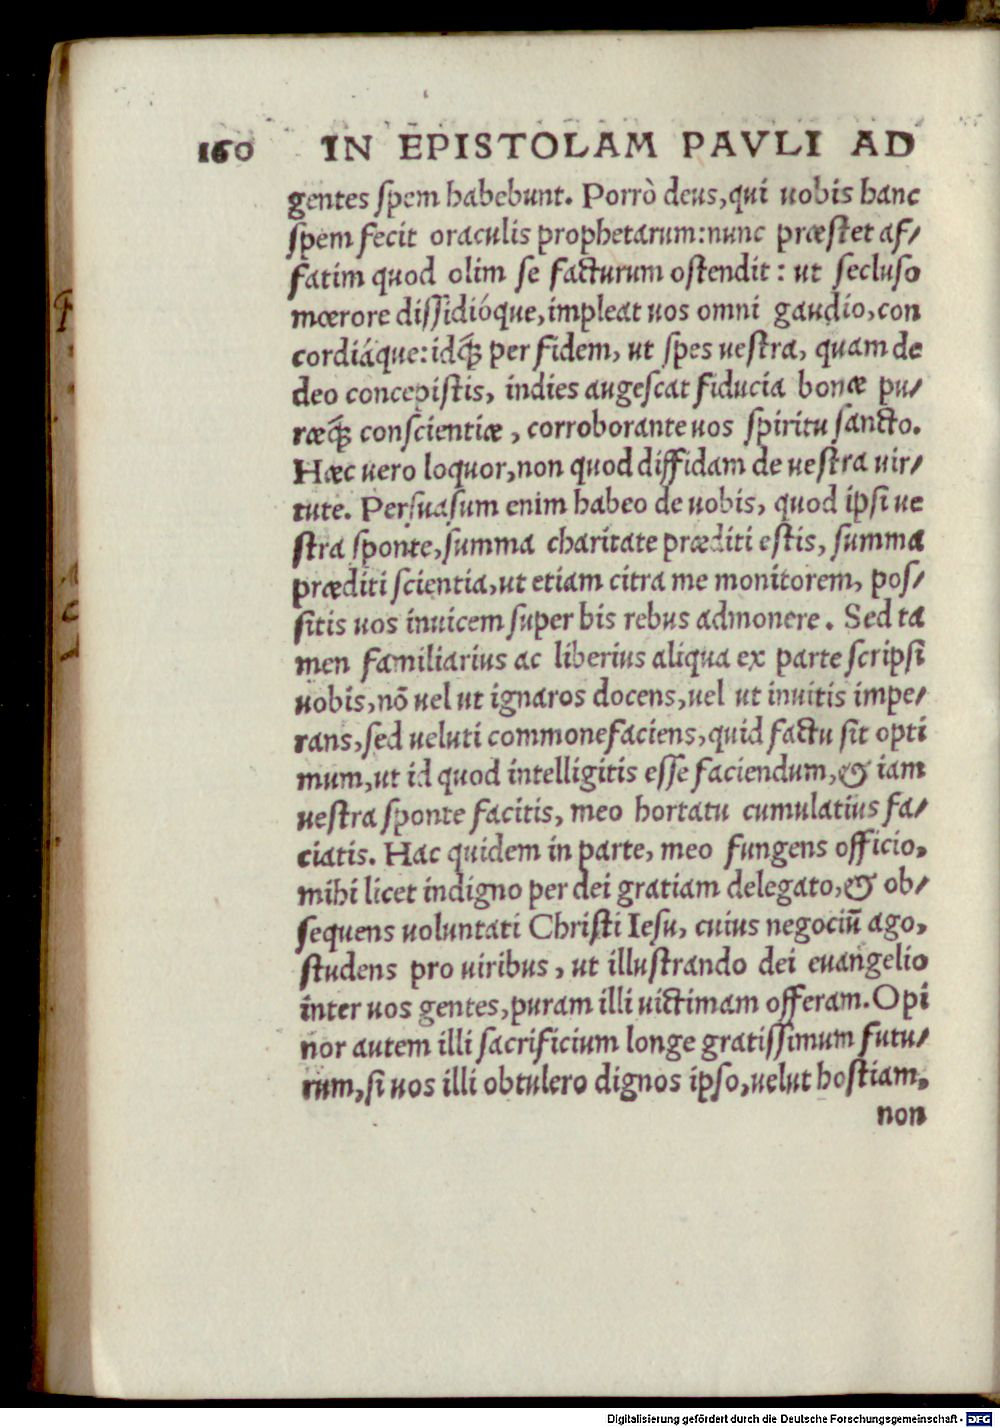 160 IN EPISTOLAM PAVLI AD
gentes spem habebunt. Porrò deus, qui uobis hanc
spem fecit oraculis prophetarum: nunc præstet af-
fatim quod olim se facturum ostendit: ut secluso
mœrore dissidióque, impleat uos omni gaudio, con
cordiáque: idq́; per fidem, ut spes uestra, quam de
deo concepistis, indies augescat fiducia bonæ pu-
ræq́; conscientiæ, corroborante uos spiritu sancto.
Hæc uero loquor, non quod diffidam de uestra uir-
tute. Persuasum enim habeo de uobis, quod ipsi ue
stra sponte, summa charitate præditi estis, summa
præditi scientia, ut etiam citra me monitorem, pos-
sitis uos inuicem super his rebus admonere. Sed ta
men familiarius ac liberius aliqua ex parte scripsi
uobis, nõ uel ut ignaros docens, uel ut inuitis impe-
rans, sed ueluti commonefaciens, quid factu sit opti
mum, ut id quod intelligitis esse faciendum, & iam
uestra sponte facitis, meo hortatu cumulatius fa-
ciatis. Hac quidem in parte, meo fungens officio,
mihi licet indigno per dei gratiam delegato, & ob-
sequens uoluntati Christi Iesu, cuius negociũ ago,
studens pro uiribus, ut illustrando dei euangelio
inter uos gentes, puram illi uictimam offeram. Opi
nor autem illi sacrificium longe gratissimum futu-
rum, si uos illi obtulero dignos ipso, uelut hostiam,
non
Digitalisierung gefördert durch die Deutsche Forschungsgemeinschaft - DFG